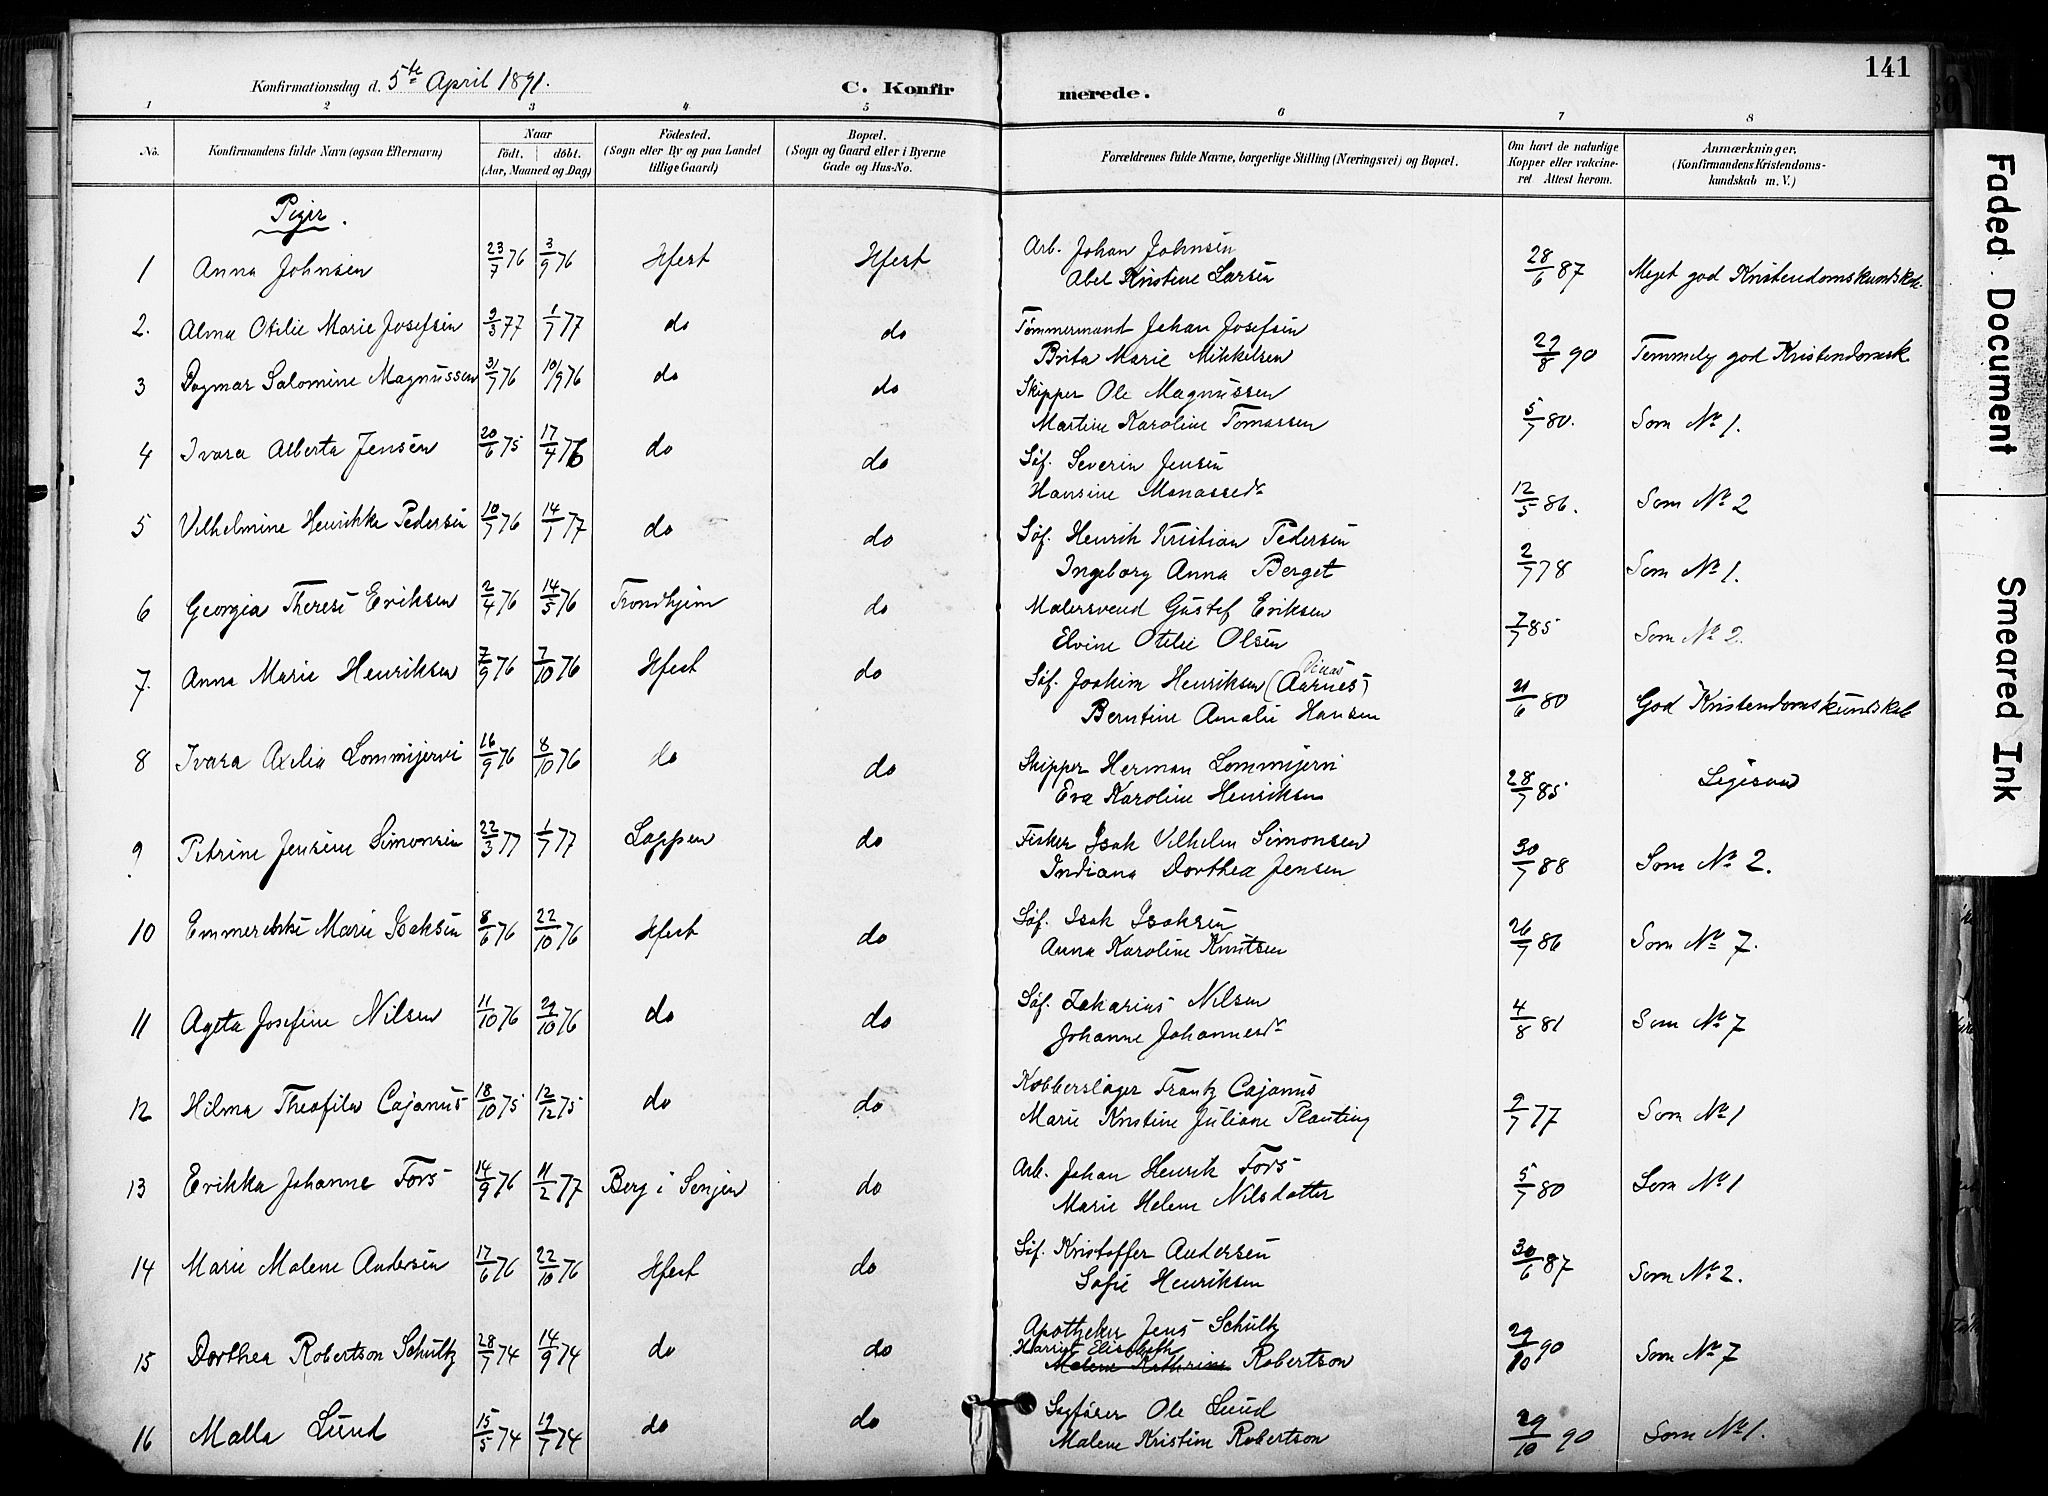 141
Konfirmationsdag d. 5te April 1891.
C. Konfirmerede.
1 2 3 4 5 6 7 8
No.
Konfirmandens fulde Navn (ogsaa Efternavn)
Naar
födt. döbt.
(Aar, Maaned og Dag)
Födested.
(Sogn eller By og paa Landet
tillige Gaard)
Bopæl.
(Sogn og Gaard eller i Byerne
Gade og Hus-No.
Forældrenes fulde Navne, borgerlige Stilling (Næringsvei) og Bopæl.
Om havt de naturlige
Kopper eller vakcine-
ret Attest herom.
Anmærkninger,
(Konfirmandens Kristendoms-
kundskab m. V.)
Piger.
1 Anna Johnsen 23/7 76 3/9 76 Hfest Hfest Arb. Johan Johnsen
Abel Kristine Larsen 28/6 87 Meget god Kristendomskundskab.
2. Alma Otilie Marie Josefsen 9/3 77 1/7 77 do do Tømmermand Johan Josefsen
Brita Marie Mikkelsen 29/8 90 Temmely god Kristendomsk
3 Dagmar Salomine Magnussen 31/7 76 10/9 76 do do Skipper Ole Magnussen
Martine Karoline Tomassen 5/7 80. Som No 1.
4 Ivara Alberta Jensen 20/6 75 17/4 76 do do Søf. Severin Jensen
Hansine Manassedr 12/5 86. Som No 2
5 Vilhelmine Henrikke Pedersen 10/7 76 14/1 77 do do Søf. Henrik Kristian Pedersen
Ingeborg Anna Berget 2/7 78 Som No 1.
6 Georgia Therese Eriksen 2/4 76 14/5 76 Trondhjem do Malersvend Gustef Eriksen
Elvine Otelie Olsen 7/7 85 Som No 2.
7. Anna Marie Henriksen 7/9 76 7/10 76 Hfest do Søf. Joakim Henriksen (Aarnes)
Berntine Amalie Hansen 21/6 80 God Kristendomskundskab
8 Ivara Axelia Lommijervi 16/9 76 8/10 76 do do Skipper Herman Lommijervi
Eva Karoline Henriksen 28/7 85 Ligesaa
9. Petrine Jensine Simonsen 22/3 77 1/7 77 Loppen do Fisker Isak Vilhelm Simonsen
Indiana Dorthea Jensen 30/7 88 Som No 2.
10 Marie Isaksen 8/6 76 22/10 76 Hfest do Søf. Isak Isaksen
Anna Karoline Knutsen 26/7 86 Som No 7.
11 Ageta Josefine Nilsen 11/10 76 29/10 76 do do Søf. Zakarias Nilsen
Johanne Johannesdr 4/8 81 Som No 7
12 Hilma Theofila Cajanus 18/10 75 12/12 75 do do Kobberslager Frantz Cajanus
Marie Kristine Juliane Planting 9/7 77 Som No 1
13 Erikka Johanne Fors 14/9 76 11/2 77 Berg i Senjen do Arb. Johan Henrik Fors
Marie Helene Nilsdatter 5/7 80 Som No 1
14 Marie Malene Andersen 17/6 76 22/10 76 Hfest do Søf. Kristoffer Andersen
Sofie Henriksen 30/6 87 Som No 2.
15 Dorthea Robertson Schultz 28/7 74 14/9 74 do do Apotheker Jens Schultz
Harriet Elisabeth
Malene Kathrine Robertson 29/10 90 Som No 7
16 Malla Lund 15/5 74 19/7 74 do do Sagfører Ole Lund
Malene Kristine Robertson 29/10 90 Som No 1.
Faded Document
Smeared Ink